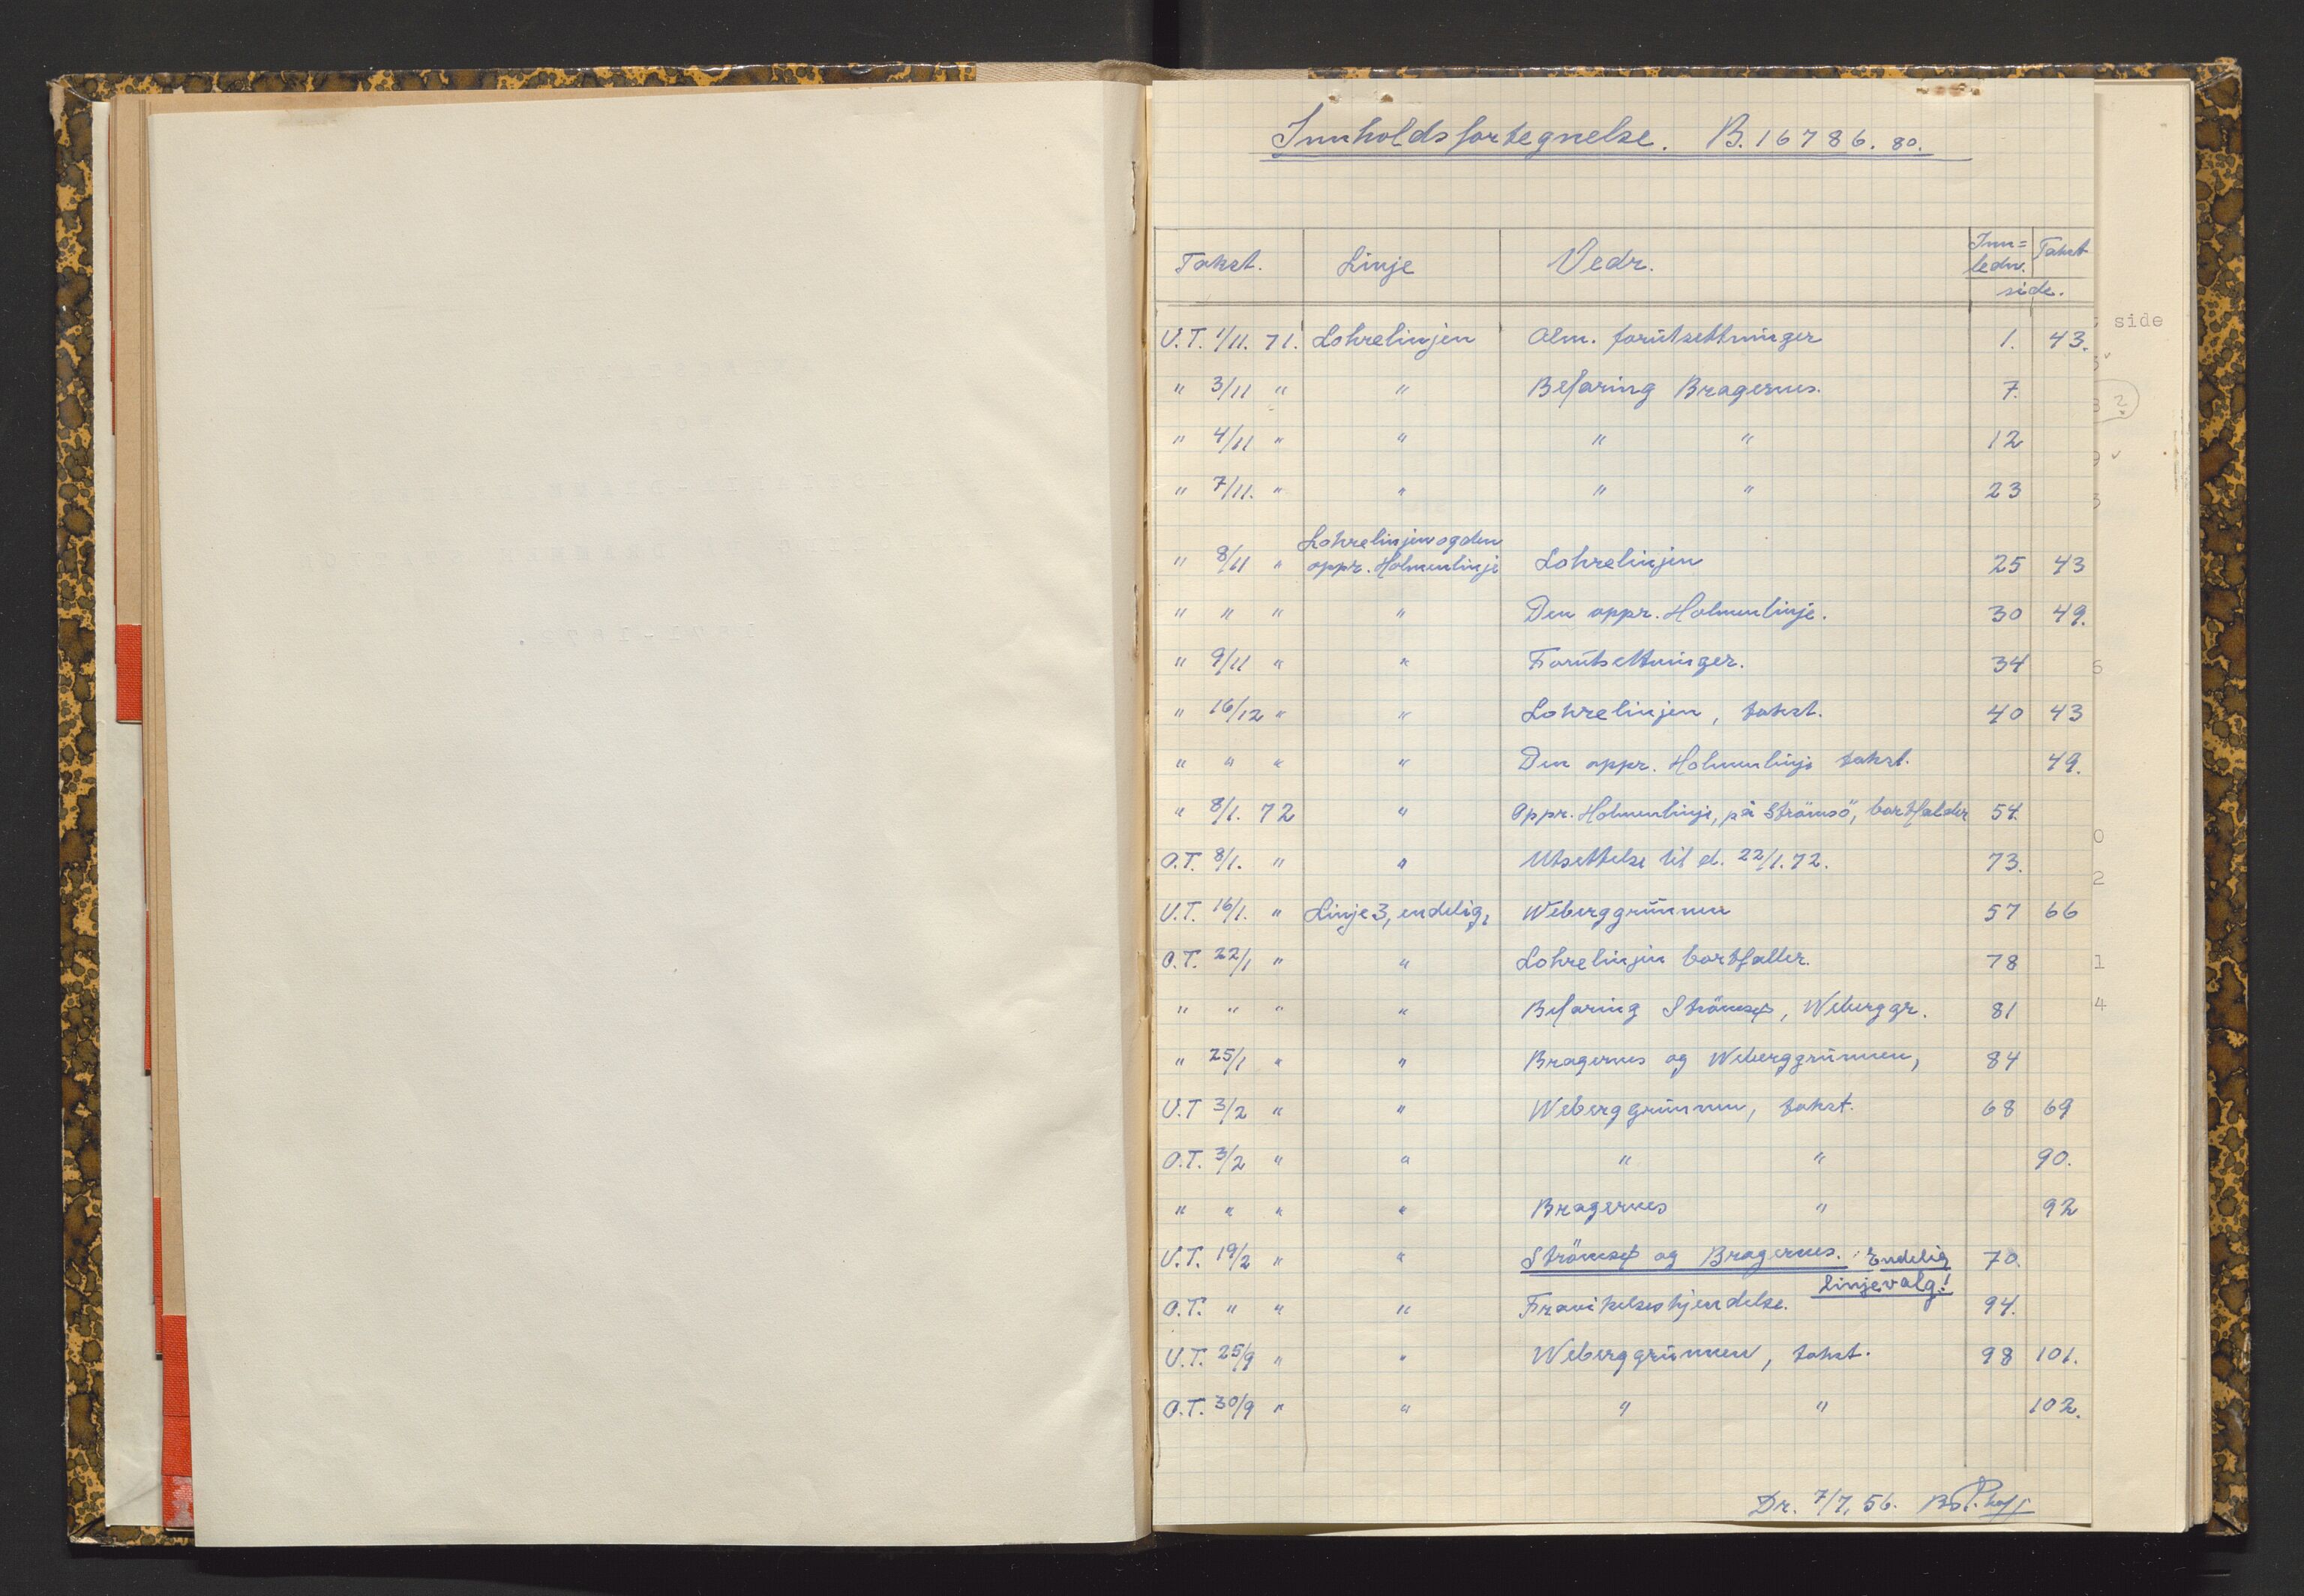 Innholdsfortegnelse. B.16786.80.
Takst. Linje Vedr. Inn= ledn. Takst
side.
U.T. 1/11. 71. Lohrelinjen Alm. forutsettninger 1. 43.
" 3/11 " " Befaring Bragernes. 7.
" 4/11 " " " " 12
" 7/11. " " " " 23
Lohrelinjen og den
" 8/11 " oppr. Holmenlinje Lohrelinjen 25 43
" " " " Den oppr. Holmenlinje. 30 49.
" 9/11 " " Forutsettninger. 34
" 16/12 " " Lohrelinjen, takst. 40 43
" " " " Den oppr. Holmenlinje takst. 49.
" 8/1. 72 " Oppr. Holmenlinje, på Strömsö, bortfalder 54.
O.T. 8/1. " " Utsettelse til d. 22/1.72. 73.
U.T. 16/1. " Linje 3, endelig, Weberggrunnen 57 66
O.T. 22/1 " " Lohrelinjen bortfaller. 78
" " " " Befaring Strömsø, Weberggr. 81
" 25/1 " " Bragernes og Weberggrunnen, 84
U.T 3/2 " " Weberggrunnen, takst. 68 69
O.T. 3/2 " " " " 90.
" " " " Bragernes " 92
U.T. 19/2 " " Strömsø og Bragernes. Endelig 70.
linjevalg!
O.T. " " " Fravikelseskjendelse. 94.
U.T. 25/9 " " Weberggrunnen, takst. 98 101.
O.T. 30/9 " " " " 102.
Dr. 7/7, 56.
side
2
6
0
2
1
4